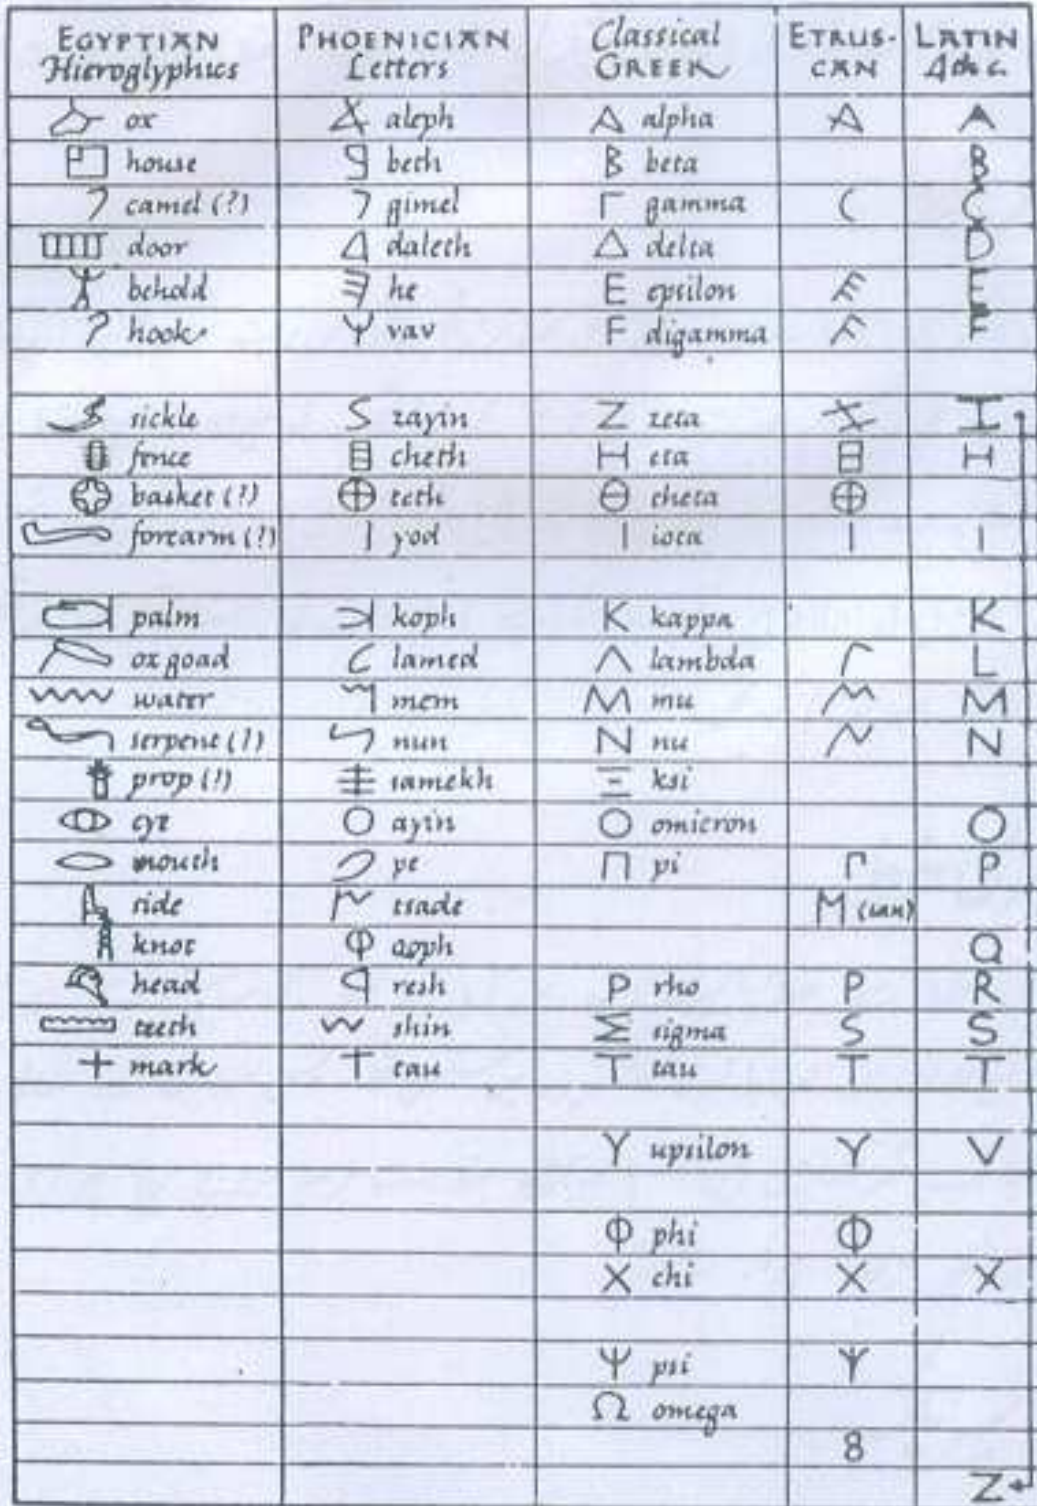 EGYPTIAN Hieroglyphics PHOENICIAN Letters Classical GREEK ETRUS-CAN LATIN 4th c.
ox aleph Α alpha A A
house beth Β beta B
camel (?) gimel Γ gamma C C
door daleth Δ delta D
behold he Ε epsilon E E
hook vav F digamma F F
sickle zayin Ζ zeta I
fence cheth Η eta H
basket (?) teth Θ theta
forearm (?) yod Ι iota I I
palm koph Κ kappa K
ox goad lamed Λ lambda L
water mem Μ mu M M
serpent (?) nun Ν nu N N
prop (?) samekh Ξ ksi
eye ayin Ο omicron O
mouth pe Π pi P
side tsade M (san)
knot qoph Q
head resh Ρ rho P R
teeth shin Σ sigma S S
mark tau Τ tau T T
Υ upsilon Y V
Φ phi Φ
Χ chi X X
Ψ psi Ψ
Ω omega
8
Z